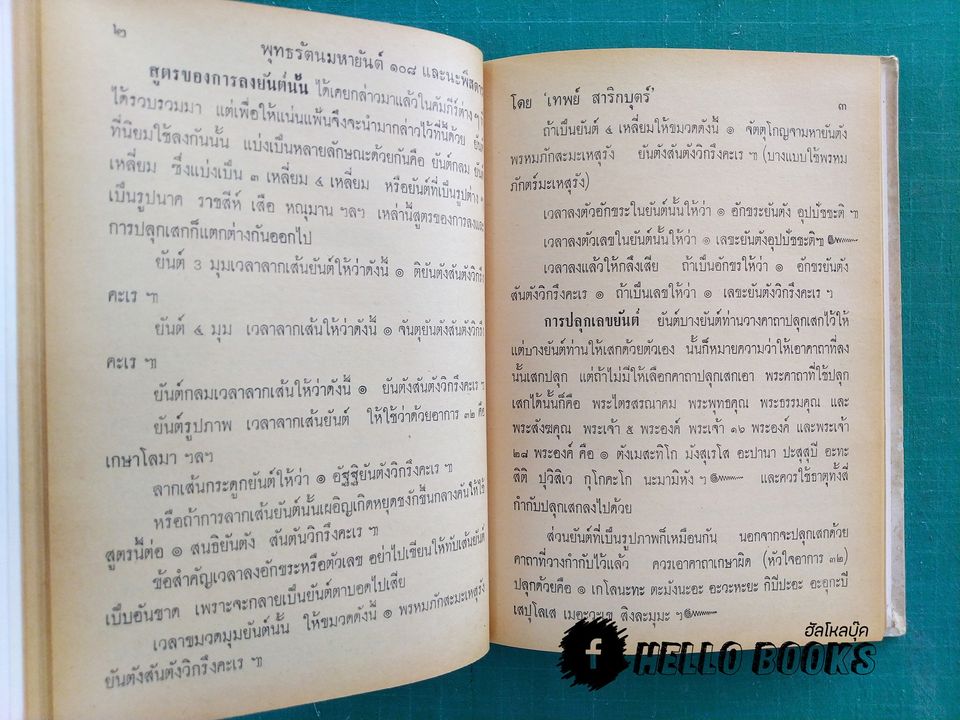 ๒
พุทธรัตนมหายันต์ ๑๐๘ และนะพิสดาร
สูตรของการลงยันต์นั้น ได้เคยกล่าวมาแล้วในคัมภีร์ต่าง ๆ
ได้รวบรวมมา แต่เพื่อให้แน่นแฟ้นจึงจะนำมากล่าวไว้ที่นี้ด้วย ยันต์
ที่นิยมใช้ลงกันนั้น แบ่งเป็นหลายลักษณะด้วยกันคือ ยันต์กลม ยันต์
เหลี่ยม ซึ่งแบ่งเป็น ๓ เหลี่ยม ๔ เหลี่ยม หรือยันต์ที่เป็นรูปต่าง ๆ
เป็นรูปนาค ราชสีห์ เสือ หณุมาน ฯลฯ เหล่านี้สูตรของการลงและ
การปลุกเสกก็แตกต่างกันออกไป
ยันต์ 3 มุมเวลาลากเส้นยันต์ให้ว่าดังนี้ ๑ ติยันตังสันตังวิกรึง
คะเร ฯ|
ยันต์ ๔ มุม เวลาลากเส้นให้ว่าดังนี้ ๑ จันตุยันตังสันตังวิกรึง
คะเร ฯ|
ยันต์กลมเวลาลากเส้นให้ว่าดังนี้ ๑ ยันตังสันตังวิกรึงคะเร ฯ|
ยันต์รูปภาพ เวลาลากเส้นยันต์ ให้ใช้ว่าด้วยอาการ ๓๒ คือ
เกษาโลมา ฯลฯ
ลากเส้นกระดูกยันต์ให้ว่า ๑ อัฐฐิยันตังวิกรึงคะเร ฯ|
หรือถ้าการลากเส้นยันต์นั้นเผอิญเกิดหยุดชงักขึ้นกลางคันให้ใช้
สูตรนี้ต่อ ๑ สนธิยันตัง สันตันวิกรึงคะเร ฯ|
ข้อสำคัญเวลาลงอักขระหรือตัวเลข อย่าไปเขียนให้ทับเส้นยันต์
เป็นอันขาด เพราะจะกลายเป็นยันต์ตาบอดไปเสีย
เวลาขมวดมุมยันต์นั้น ให้ขมวดดังนี้ ๑ พรหมภักสะมะเหสุรัง
ยันตังสันตังวิกรึงคะเร ฯ|
โดย 'เทพย์ สาริกบุตร์'
๓
ถ้าเป็นยันต์ ๔ เหลี่ยมให้ขมวดดังนี้ ๑ จัตตุโกญจามหายันตัง
พรหมภักสะมะเหสุรัง ยันตังสันตังวิกรึงคะเร ฯ| (บางแบบใช้พรหม
ภักตร์มะเหสุรัง)
เวลาลงตัวอักขระในยันต์นั้นให้ว่า ๑ อักขระยันตัง อุปปัชชะติ ฯ|
เวลาลงตัวเลขในยันต์นั้นให้ว่า ๑ เลขะยันตังอุปปัชชะติฯ|
เวลาลงแล้วให้กลึงเสีย ถ้าเป็นอักขรให้ว่า ๑ อักขรยันตัง
สันตังวิกรึงคะเร ๑ ถ้าเป็นเลขให้ว่า ๑ เลขะยันตังวิกรึงคะเร ฯ
การปลุกเลขยันต์ ยันต์บางยันต์ท่านวางคาถาปลุกเสกไว้ให้
แต่บางยันต์ท่านให้เสกด้วยตัวเอง นั้นก็หมายความว่าให้เอาคาถาที่ลง
นั้นเสกปลุก แต่ถ้าไม่มีให้เลือกคาถาปลุกเสกเอา พระคาถาที่ใช้ปลุก
เสกได้นั้นก็คือ พระไตรสรณาคม พระพุทธคุณ พระธรรมคุณ และ
พระสังฆคุณ พระเจ้า ๕ พระองค์ พระเจ้า ๑๖ พระองค์ และพระเจ้า
๒๘ พระองค์ คือ ๑ ตังเมสะทิโก มังสุเรโส อะปานา ปะสุสุปี อะทะ
สิติ ปุวิสิเว กุโกคะโก นะมามิหัง ฯ และควรใช้ธาตุทั้งสี่
กำกับปลุกเสกลงไปด้วย
ส่วนยันต์ที่เป็นรูปภาพก็เหมือนกัน นอกจากจะปลุกเสกด้วย
คาถาที่วางกำกับไว้แล้ว ควรเอาคาถาเกษาผิด (หัวใจอาการ ๓๒)
ปลุกด้วยคือ ๑ เกโลนะทะ ตะมังนะอะ อะวะหะยะ กิปิปะอะ อะอุกะปี
เสปุโลเส เมอะวะเข สิงละมุมะ ฯ
ฮัลโหลบุ๊ค
f HELLO BOOKS